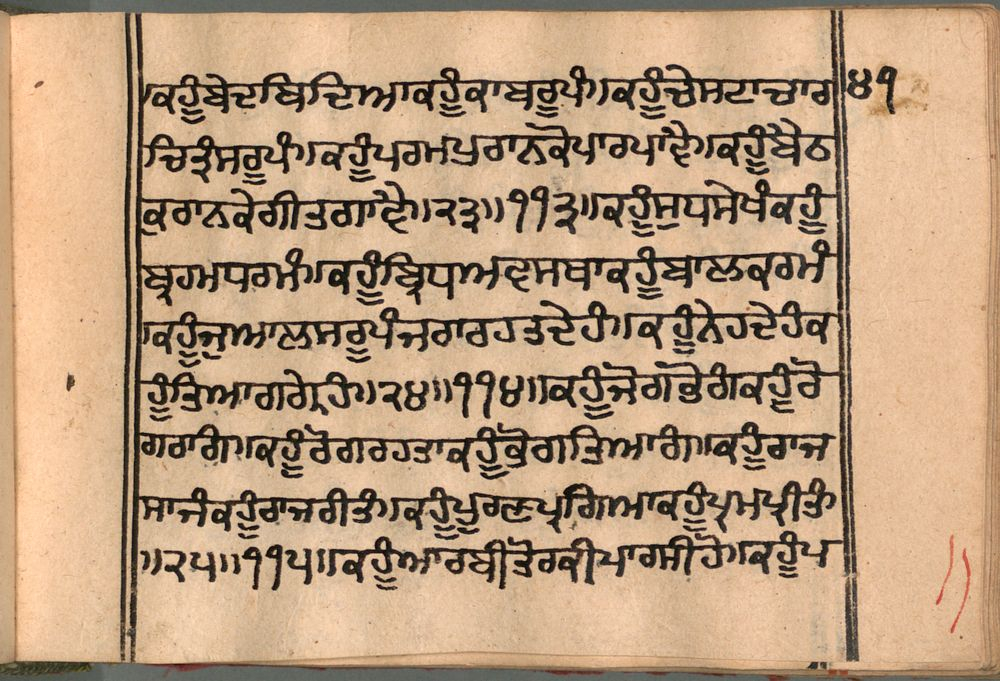 ।ਕਹੂੰਬੇਦਬਿਦਿਆਕਹੂੰਕਾਬਰੂਪੰ।ਕਹੂੰਚੇਸਟਾਚਾਰ ੪੧
ਚਿਤ੍ਰੰਸਰੂਪੰ।ਕਹੂੰਪਰਮਪੁਰਾਨਕੋਪਾਰਪਾਵੈ।ਕਹੂੰਬੈਠ
ਕੁਰਾਨਕੇਗੀਤਗਾਵੈ॥੨੩॥੧੧੩॥ਕਹੂੰਸੁਧਸੇਖੰਕਹੂੰ
ਬ੍ਰਹਮਧਰਮੰ।ਕਹੂੰਬ੍ਰਿਧਾਅਵਸਥਾਕਹੂੰਬਾਲਕਰਮੰ
।ਕਹੂੰਜੁਆਲਸਰੂਪੰਜਰਾਰਹਤਦੇਹੰ।ਕਹੂੰਨੇਹਦੇਹੰਕ
ਹੂੰਤਿਆਗਗ੍ਰੇਹੰ॥੨੪॥੧੧੪॥ਕਹੂੰਜੋਗਭੋਗੰਕਹੂੰਰੋ
ਗਰਾਗੰ।ਕਹੂੰਰੋਗਰਹਤਾਕਹੂੰਭੋਗਤਿਆਗੰ।ਕਹੂੰਰਾਜ
ਸਾਜੰਕਹੂੰਰਾਜਰੀਤੰ।ਕਹੂੰਪੂਰਣਪ੍ਰਗਿਆਕਹੂੰਪ੍ਰਮਪ੍ਰੀਤੰ
॥੨੫॥੧੧੫॥ਕਹੂੰਆਰਬੀਤੋਰਕੀਪਾਰਸੀਹੋ।ਕਹੂੰਪ